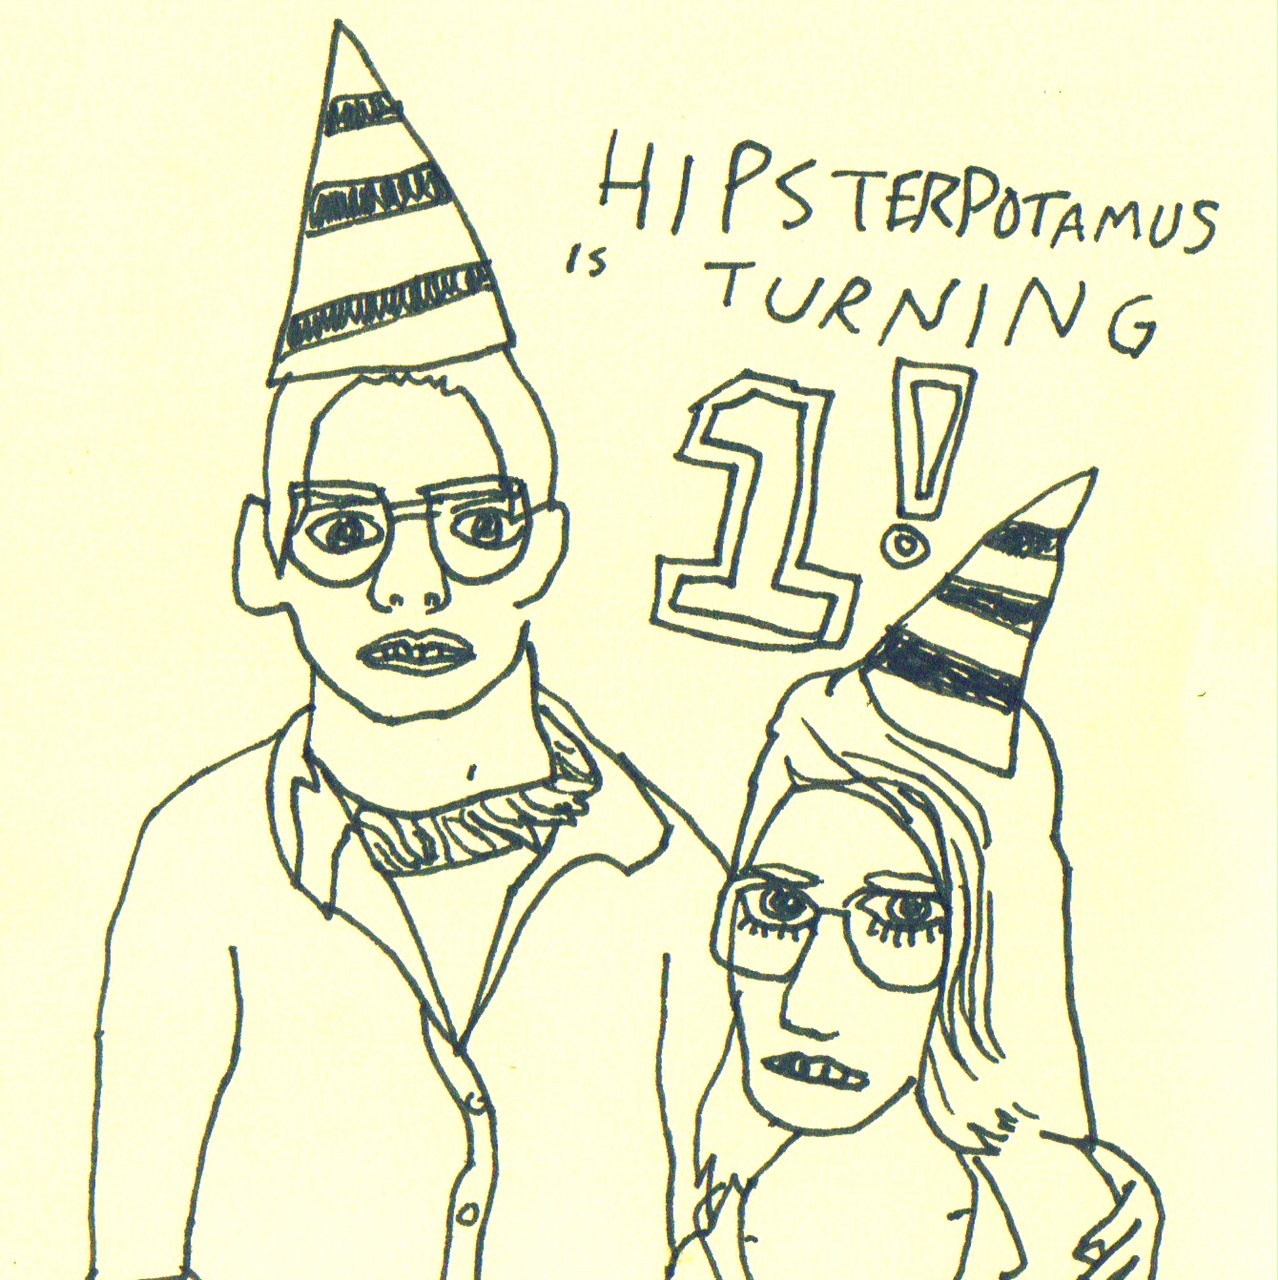 HIPSTERPOTAMUS
IS TURNING
1!